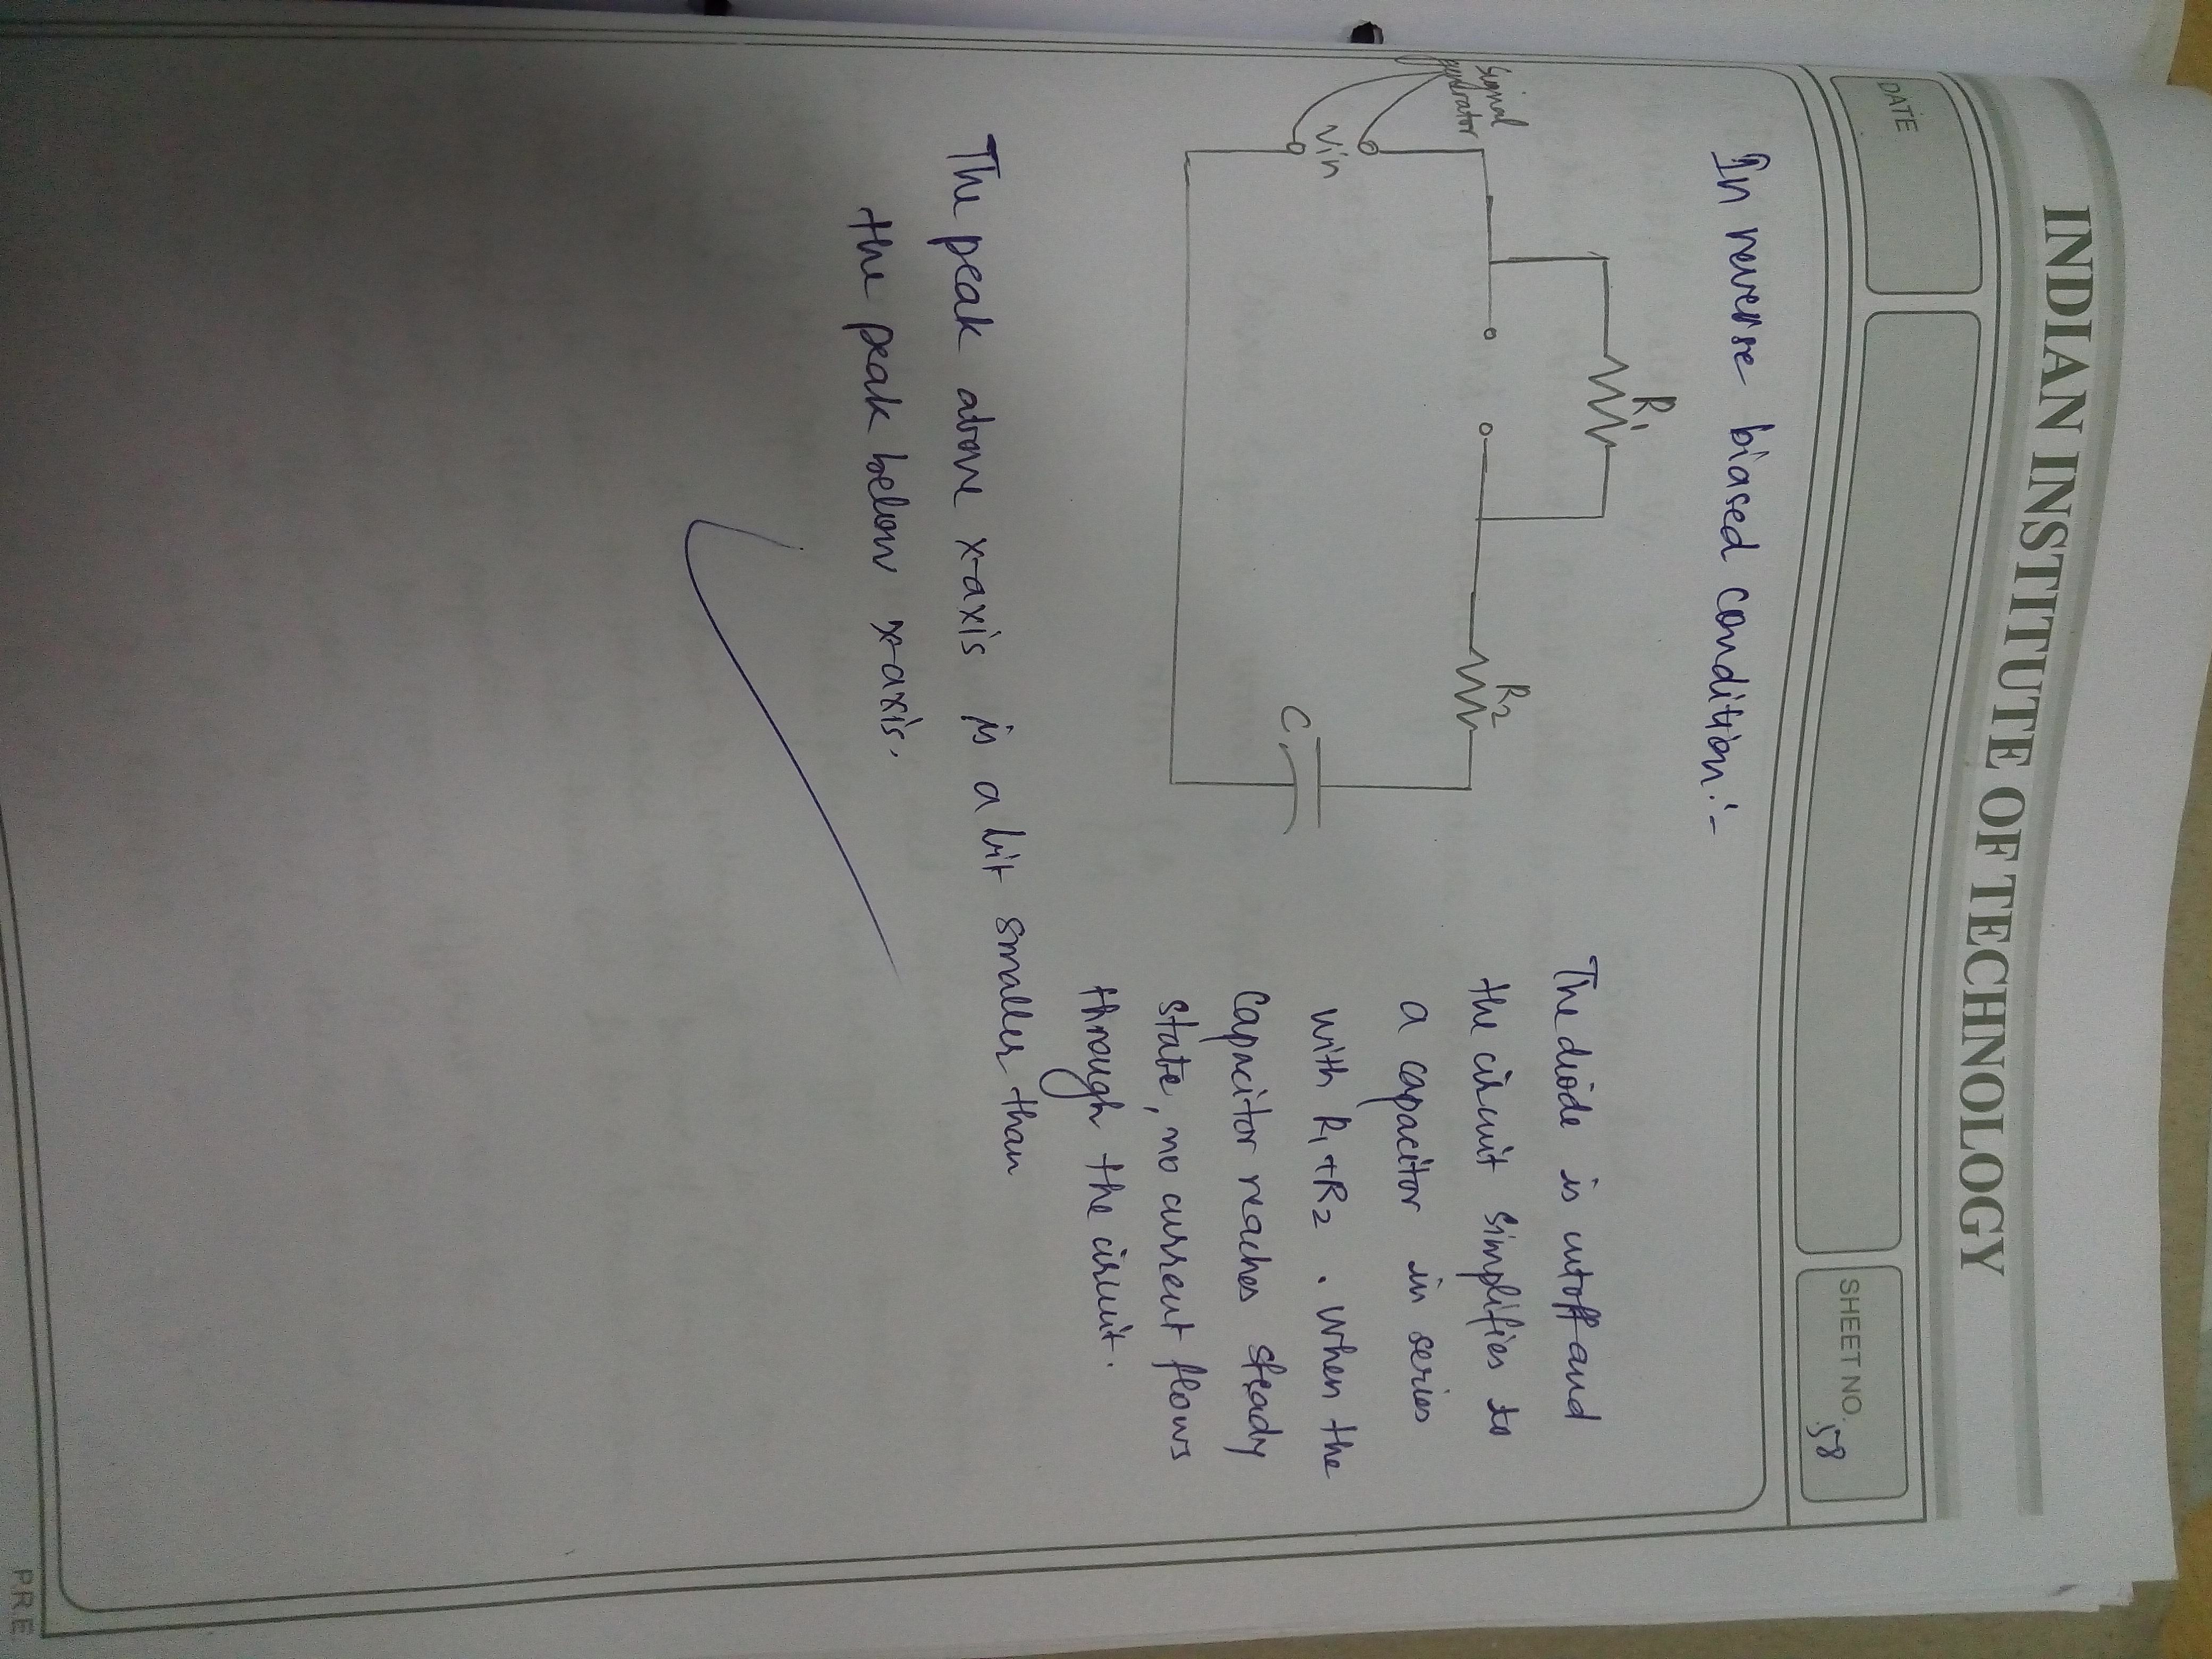 INDIAN INSTITUTE OF TECHNOLOGY
DATE
SHEET NO. 58
In reverse biased condition:-
R1
R2
Signal
generator
Vin
C
The diode is cutoff and
the circuit simplifies to
a capacitor in series
with R1+R2 . When the
Capacitor reaches steady
state, no current flows
through the circuit.
The peak above x-axis is a bit smaller than
the peak below x-axis.
P.R.E.